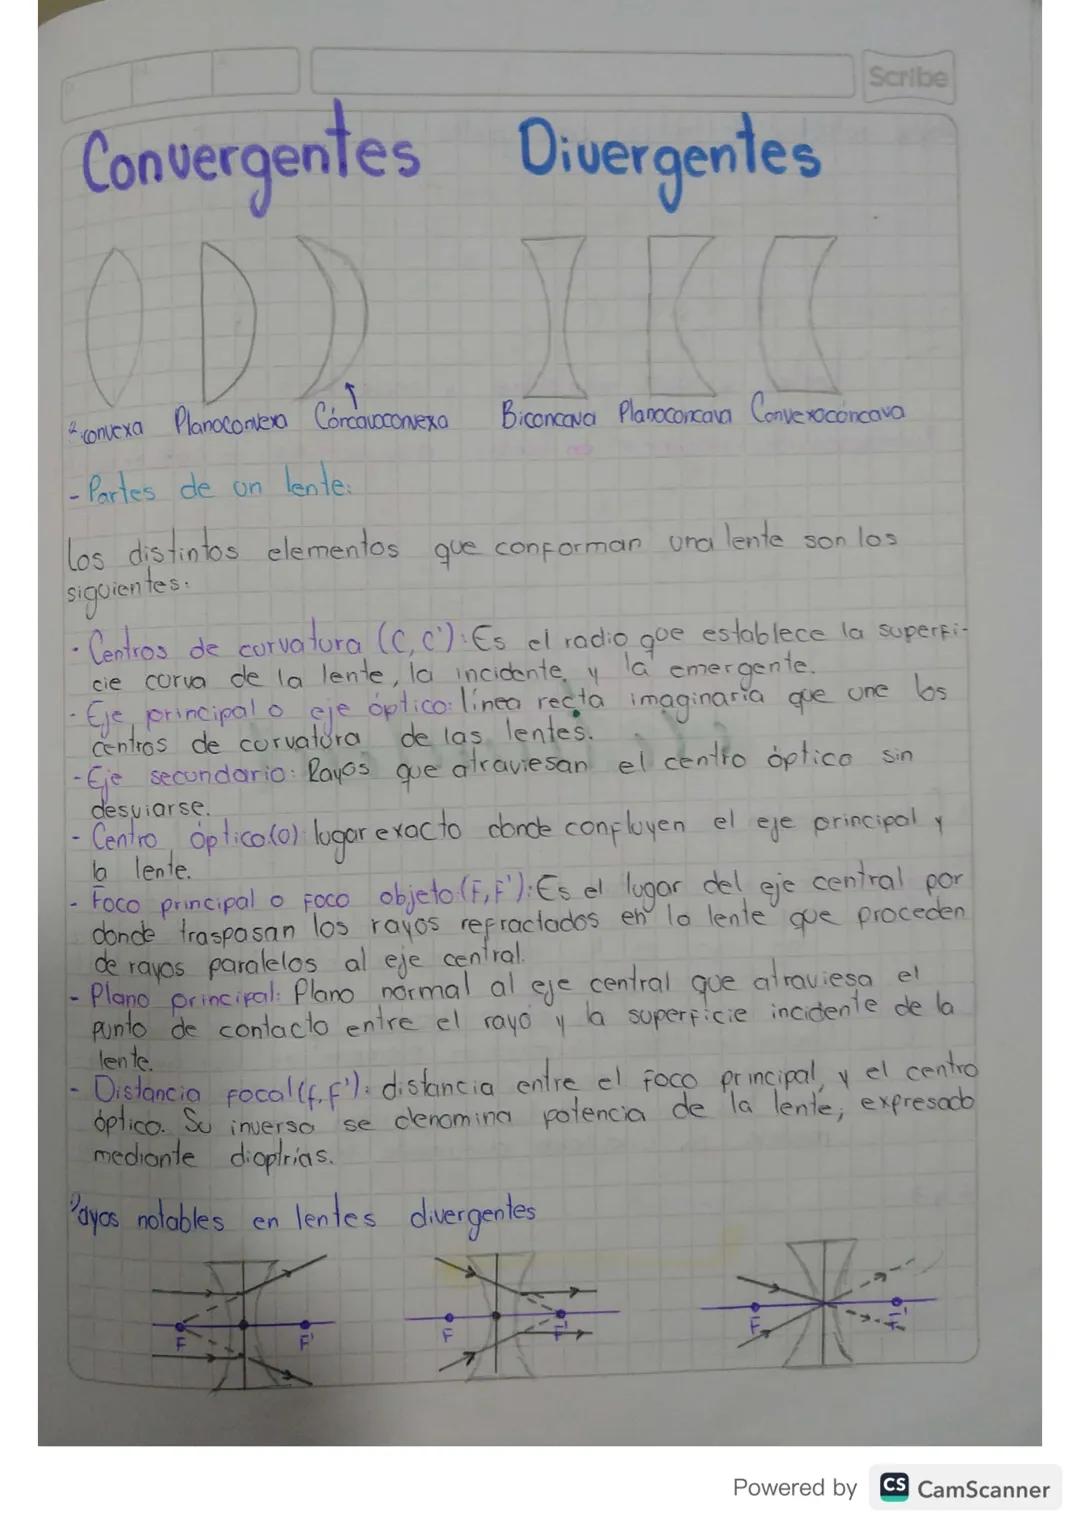 Scribe
Convergentes Divergentes
convexa Planoconvexa Córcavoconvexa Biconcava Planoconcava Convexocóncava
- Partes de un lente:
Los distintos elementos que conforman una lente son los
siguientes:
· Centros de curvatura (C, C'): Es el radio que establece la superfi-
cie curva de la lente, la incidente y la emergente.
- Eje principal o eje óptico: línea recta imaginaria que une los
centros de curvatura de las lentes.
- Eje secundario: Rayos que atraviesan el centro óptico sin
desviarse.
- Centro óptico.(o): lugar exacto donde confluyen el eje principal y
la lente.
- Foco principal o foco objeto.(F, F'): Es el lugar del eje central por
donde traspasan los rayos refractados en la lente que proceden
de rayos paralelos al eje central.
- Plano principal: Plano normal al eje central que atraviesa el
punto de contacto entre el rayo y la superficie incidente de la
lente.
- Distancia focal (f, f'): distancia entre el foco principal, y el centro
óptico. Su inversa se denomina potencia de la lente, expresado
mediante dioptrías.
Rayos notables en lentes divergentes
F F' F F' F F'
Powered by CS CamScanner